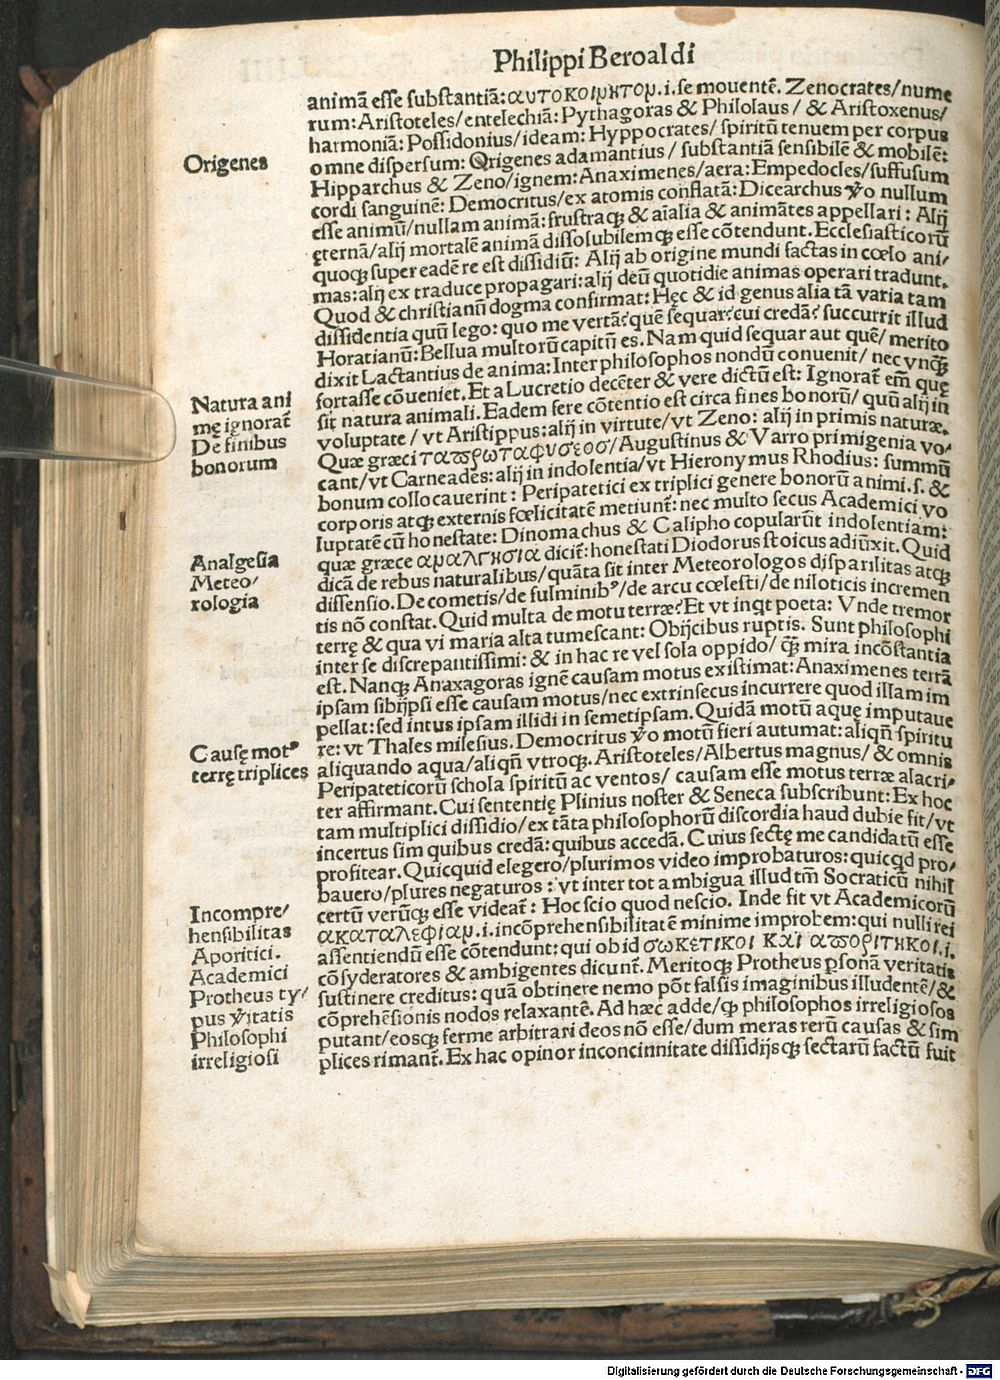 Philippi Beroaldi
animā esse substantiā: αυτοκοιμητομ .i. se mouentē. Zenocrates/nume
rum: Aristoteles/entelechiā: Pythagoras & Philolaus/ & Aristoxenus/
harmoniā: Possidonius/ideam: Hyppocrates/spiritū tenuem per corpus
Origenes
omne dispersum: Origenes adamantius/ substantiā sensibilē & mobilē:
Hipparchus & Zeno/ignem: Anaximenes/aera: Empedocles/suffusum
cordi sanguinē: Democritus/ex atomis conflatā: Dicearchus ꝟo nullum
esse animū/nullam animā: frustraqꝫ & aīalia & animātes appellari: Alij
ęternā/alij mortalē animā dissolubilemqꝫ esse cōtendunt. Ecclesiasticorū
quoqꝫ super eadē re est dissidiū: Alij ab origine mundi factas in cœlo ani/
mas: alij ex traduce propagari: alij deū quotidie animas operari tradunt.
Quod & christianū dogma confirmat: Hęc & id genus alia tā varia tam
dissidentia quū lego: quo me vertā? quē sequar? cui credā? succurrit illud
Horatianū: Bellua multorū capitū es. Nam quid sequar aut quē/ merito
dixit Lactantius de anima: Inter philosophos nondū conuenit/ nec vnqꝫ̄
fortasse cōueniet. Et a Lucretio decēter & vere dictū est: Ignorat̄ em̄ quę
Natura ani
mę ignorat̄
De finibus
bonorum
sit natura animali. Eadem fere cōtentio est circa fines bonorū/ quū alij in
voluptate/ vt Aristippus: alij in virtute/vt Zeno: alij in primis naturæ.
Quæ græci ταπρωταφυσεοσ/Augustinus & Varro primigenia vo/
cant/vt Carneades: alij in indolentia/vt Hieronymus Rhodius: summū
bonum collocauerint: Peripatetici ex triplici genere bonorū animi. s. &
corporis atqꝫ externis fœlicitatē metiunt̄: nec multo secus Academici vo
luptatē cū honestate: Dinomachus & Calipho copularūt indolentiam:
Analgesia
quæ græce αμαλγησια dicit̄: honestati Diodorus stoicus adiūxit. Quid
Meteo/
rologia
dicā de rebus naturalibus/quāta sit inter Meteorologos disparilitas atqꝫ
dissensio. De cometis/de fulminibꝰ/de arcu cœlesti/de niloticis incremen
tis nō constat. Quid multa de motu terræ? Et vt inqt poeta: Vnde tremor
terrę & qua vi maria alta tumescant: Obijcibus ruptis. Sunt philosophi
inter se discrepantissimi: & in hac re vel sola oppido/ qꝫ̄ mira incōstantia
est. Nanqꝫ Anaxagoras ignē causam motus existimat: Anaximenes terrā
ipsam sibijpsi esse causam motus/nec extrinsecus incurrere quod illam im
pellat: sed intus ipsam illidi in semetipsam. Quidā motū aquę imputaue
Causę motꝰ
terrę triplices
re: vt Thales milesius. Democritus ꝟo motū fieri autumat: aliqn̄ spiritu
aliquando aqua/aliqn̄ vtroqꝫ. Aristoteles/Albertus magnus/ & omnis
Peripateticorū schola spiritū ac ventos/ causam esse motus terræ alacri/
ter affirmant. Cui sententię Plinius noster & Seneca subscribunt: Ex hoc
tam multiplici dissidio/ex tāta philosophorū discordia haud dubie fit/vt
incertus sim quibus credā: quibus accedā. Cuius sectę me candidatū esse
profitear. Quicquid elegero/plurimos video improbaturos: quicqd pro/
bauero/plures negaturos: vt inter tot ambigua illud tm̄ Socraticū nihil
Incompre/
hensibilitas
Aporitici.
Academici
Protheus ty/
pus ꝟitatis
Philosophi
irreligiosi
certū verūqꝫ esse videat̄: Hoc scio quod nescio. Inde fit vt Academicorū
ακαταλεφιαμ .i. incōprehensibilitatē minime improbem: qui nulli rei
assentiendū esse cōtendunt: qui ob id σωκετικοι και αποριτηκοι .i.
cōsyderatores & ambigentes dicunt̄. Meritoqꝫ Protheus ꝑsonā veritatis
sustinere creditus: quā obtinere nemo pōt falsis imaginibus illudentē/&
cōprehēsionis nodos relaxantē. Ad hæc adde/ꝙ philosophos irreligiosos
putant/eosqꝫ ferme arbitrari deos nō esse/dum meras rerū causas & sim
plices rimant̄. Ex hac opinor inconcinnitate dissidijsqꝫ sectarū factū fuit
Digitalisierung gefördert durch die Deutsche Forschungsgemeinschaft - DFG